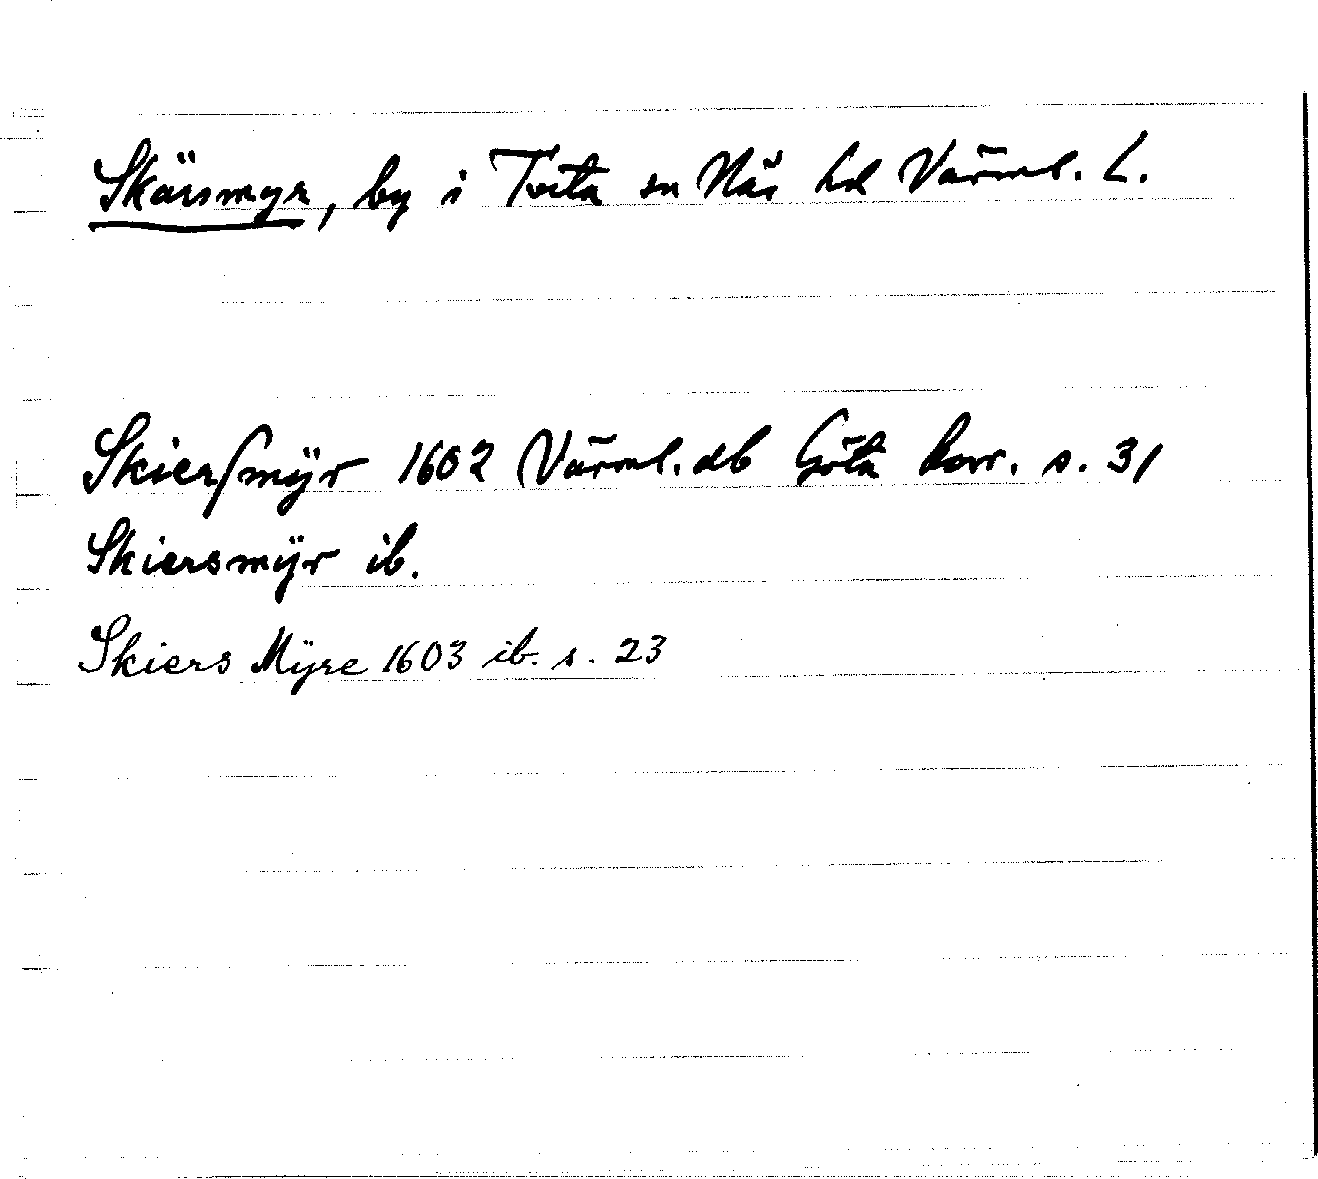 Skärsmyr, by i Tveta sn Näs hd Värml. L.
Skierſmÿr 1602 Värml. db Göta hovr. s. 31
Skiersmÿr ib.
Skiers Mÿre 1603 ib. s. 23